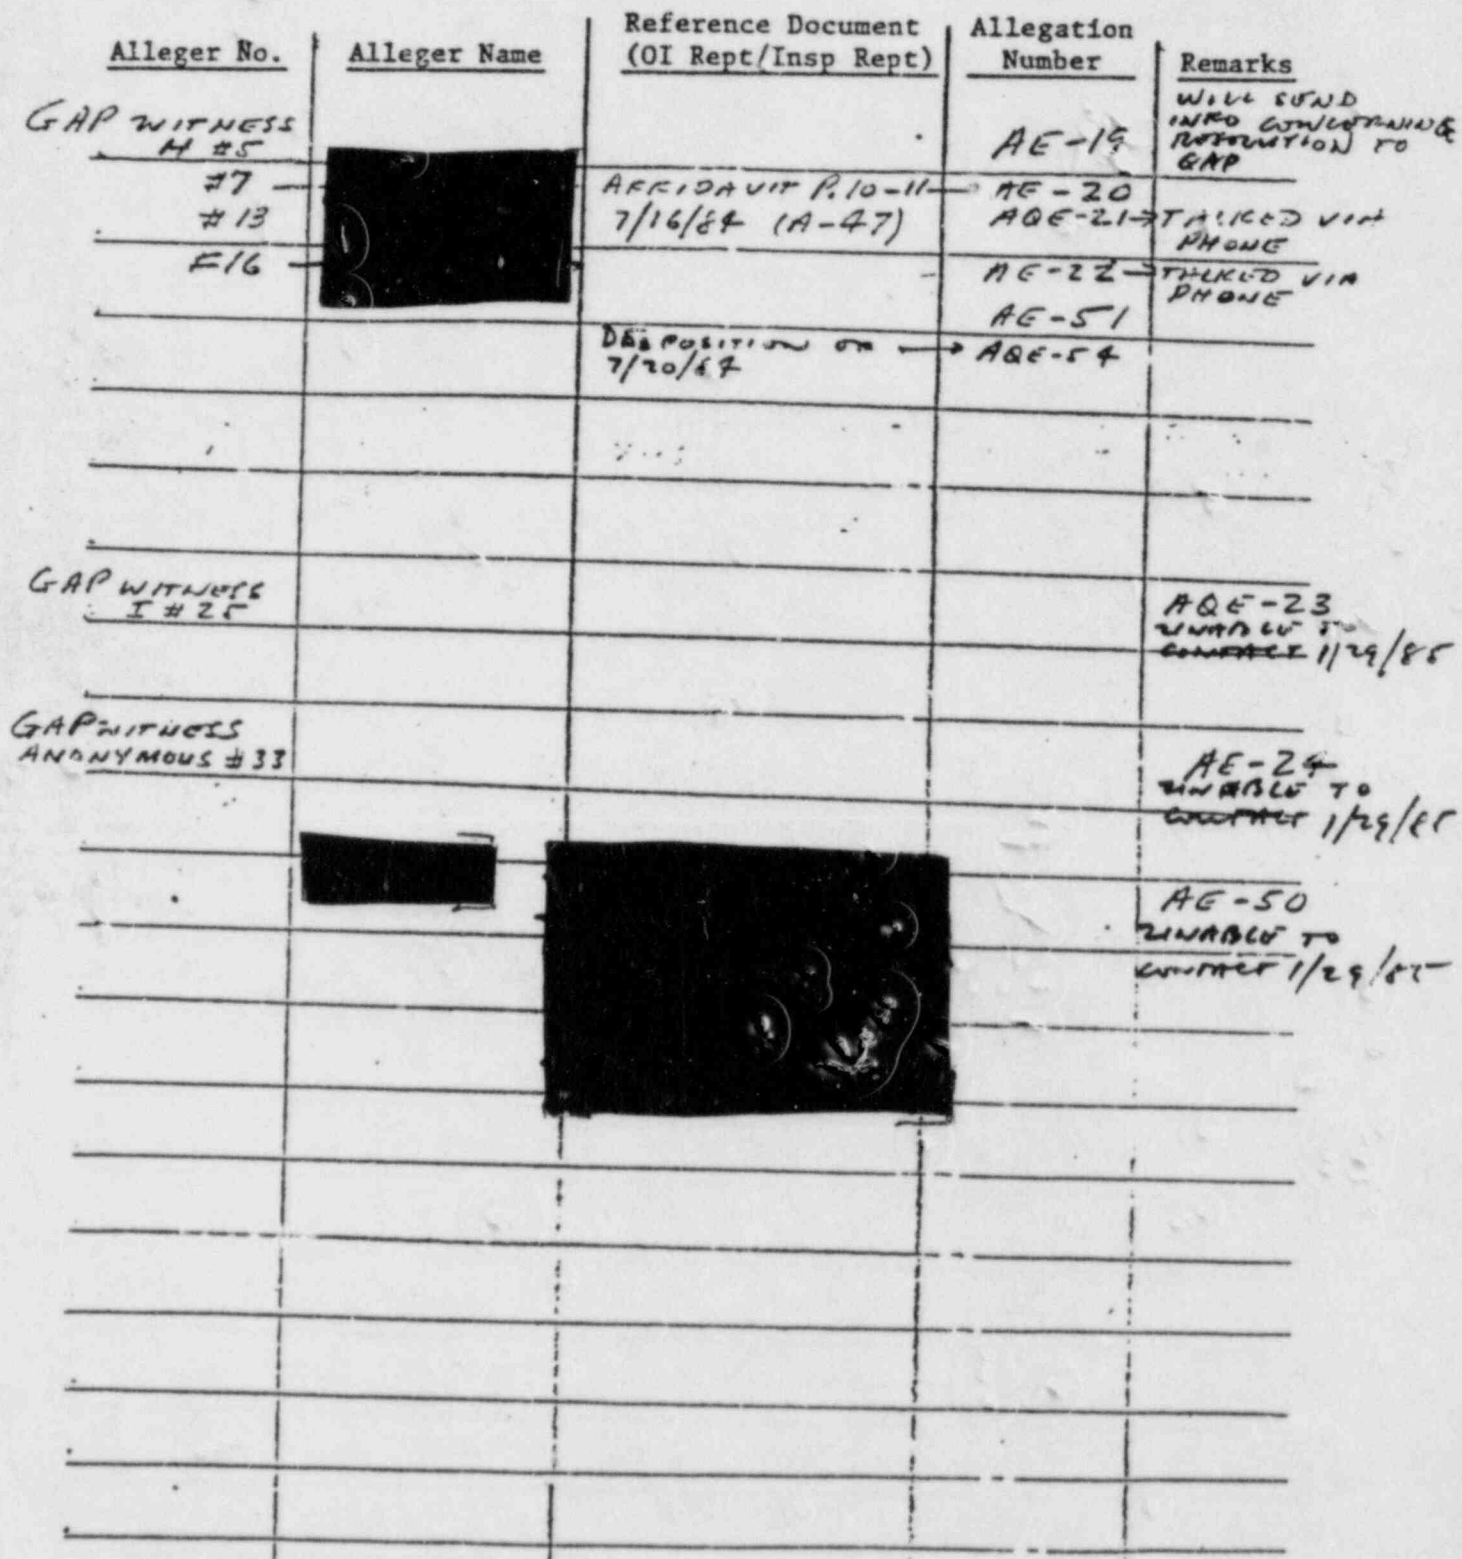 Alleger No. Alleger Name Reference Document (OI Rept/Insp Rept) Allegation Number Remarks
GAP WITNESS
H #5
AE-19
WILL SEND
INFO CONCERNING
RESOLUTION TO
GAP
#7
AFFIDAVIT P. 10-11
AE-20
#13
7/16/84 (A-47)
AQE-21 → TALKED VIA
PHONE
F16
AE-22 → TALKED VIA
PHONE
AE-51
DEPOSITION OF → AQE-54
7/20/84
GAP WITNESS
I #25
AQE-23
UNABLE TO
CONTACT 1/29/85
GAP WITNESS
ANONYMOUS #33
AE-24
UNABLE TO
CONTACT 1/29/85
AE-50
UNABLE TO
CONTACT 1/29/85